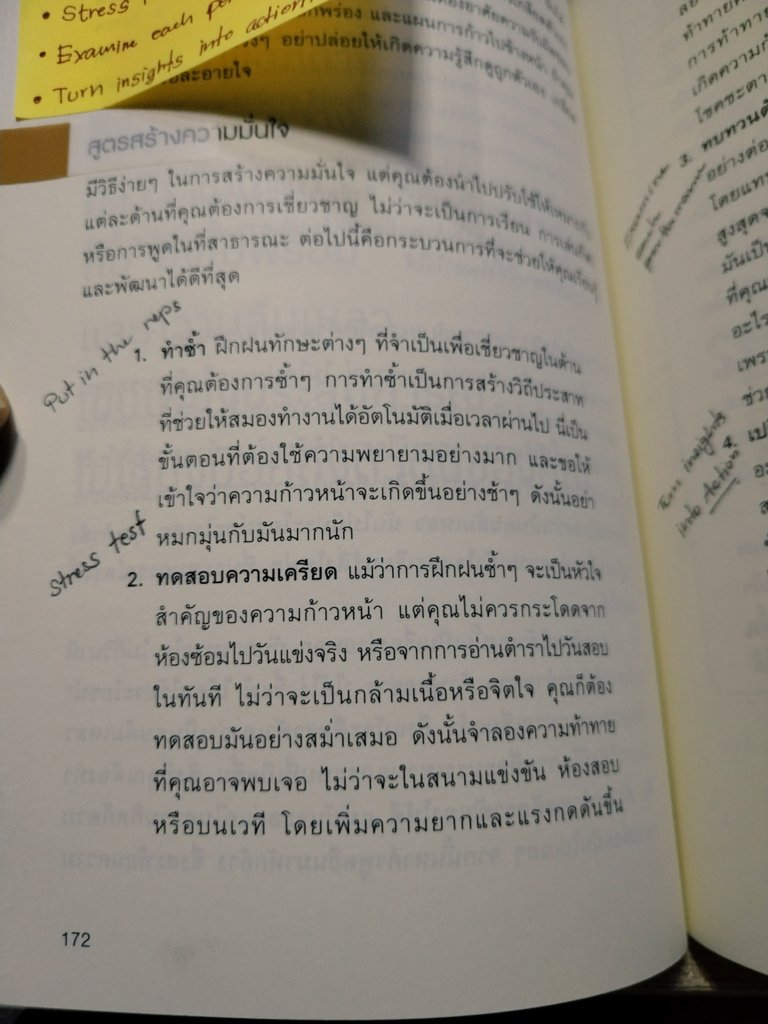 • Stress
• Examine each
• Turn insights into action
กพร่อง และแผนการก้าวไปข้างหน้า
อย่าปล่อยให้เกิดความรู้สึกดูถูกตัวเอง
ละอายใจ
สูตรสร้างความมั่นใจ
มีวิธีง่ายๆ ในการสร้างความมั่นใจ แต่คุณต้องนำไปปรับใช้ให้เหมาะกับ
แต่ละด้านที่คุณต้องการเชี่ยวชาญ ไม่ว่าจะเป็นการเรียน การเล่นกีฬา
หรือการพูดในที่สาธารณะ ต่อไปนี้คือกระบวนการที่จะช่วยให้คุณเรียนรู้
และพัฒนาได้ดีที่สุด
Put in the reps
1. ทำซ้ำ ฝึกฝนทักษะต่างๆ ที่จำเป็นเพื่อเชี่ยวชาญในด้าน
ที่คุณต้องการซ้ำๆ การทำซ้ำเป็นการสร้างวิถีประสาท
ที่ช่วยให้สมองทำงานได้อัตโนมัติเมื่อเวลาผ่านไป นี่เป็น
ขั้นตอนที่ต้องใช้ความพยายามอย่างมาก และขอให้
เข้าใจว่าความก้าวหน้าจะเกิดขึ้นอย่างช้าๆ ดังนั้นอย่า
หมกมุ่นกับมันมากนัก
Stress test
2. ทดสอบความเครียด แม้ว่าการฝึกฝนซ้ำๆ จะเป็นหัวใจ
สำคัญของความก้าวหน้า แต่คุณไม่ควรกระโดดจาก
ห้องซ้อมไปวันแข่งจริง หรือจากการอ่านตำราไปวันสอบ
ในทันที ไม่ว่าจะเป็นกล้ามเนื้อหรือจิตใจ คุณก็ต้อง
ทดสอบมันอย่างสม่ำเสมอ ดังนั้นจำลองความท้าทาย
ที่คุณอาจพบเจอ ไม่ว่าจะในสนามแข่งขัน ห้องสอบ
หรือบนเวที โดยเพิ่มความยากและแรงกดดันขึ้น
172
ท้าทาย
การท้าทาย
เกิดความ
โชคชะตา
3. ทบทวน
อย่างต่อ
โดยแท
สูงสุด
มันเป็น
ที่คุณ
อะไร
เพรา
ช่วย
Turn insights
into action
4.